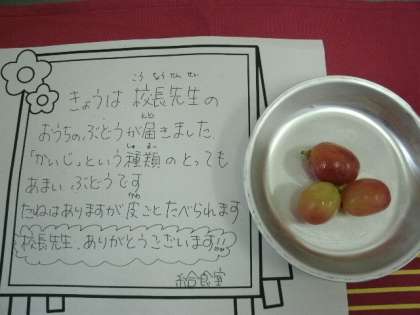 きょうは 校長先生の
おうちのぶどうが届きました。
「かいじ」という種類の とっても
あまい ぶどうです
たねはありますが皮ごとたべられます
校長先生、ありがとうございます!!
給食室